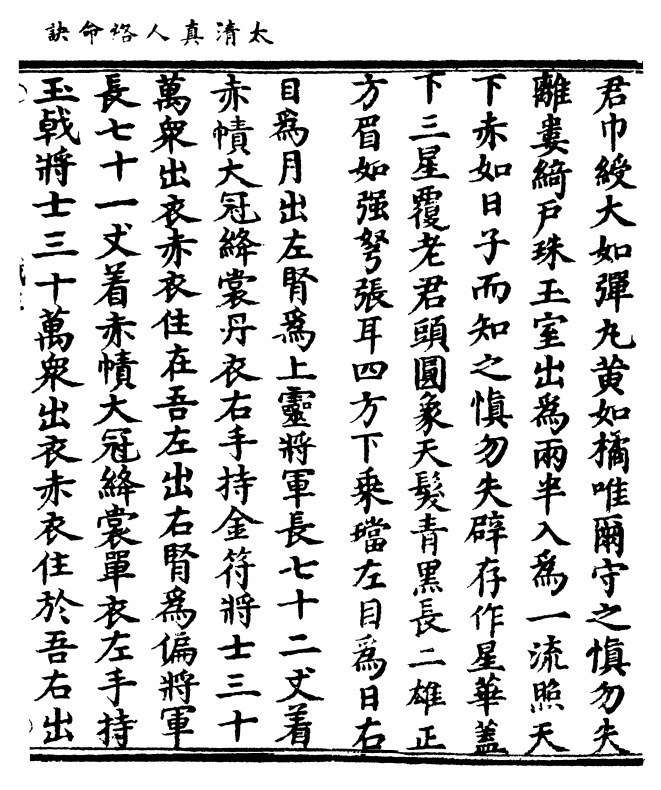 太清真人絡命訣
君巾綬大如彈丸黄如橘唯爾守之慎勿失
離婁綺戶珠玉室出爲兩半入爲一流照天
下赤如日子而知之慎勿失辟存作星華蓋
下三星覆老君頭圓象天髮青黑長二雄正
方眉如强弩張耳四方下乗璫左目爲日右
目爲月出左腎爲上靈將軍長七十二丈着
赤幘大冠絳裳丹衣右手持金符將士三十
萬衆出衣赤衣住在吾左出右腎爲偏將軍
長七十一丈着赤幘大冠絳裳單衣左手持
玉戟將士三十萬衆出衣赤衣住於吾右出